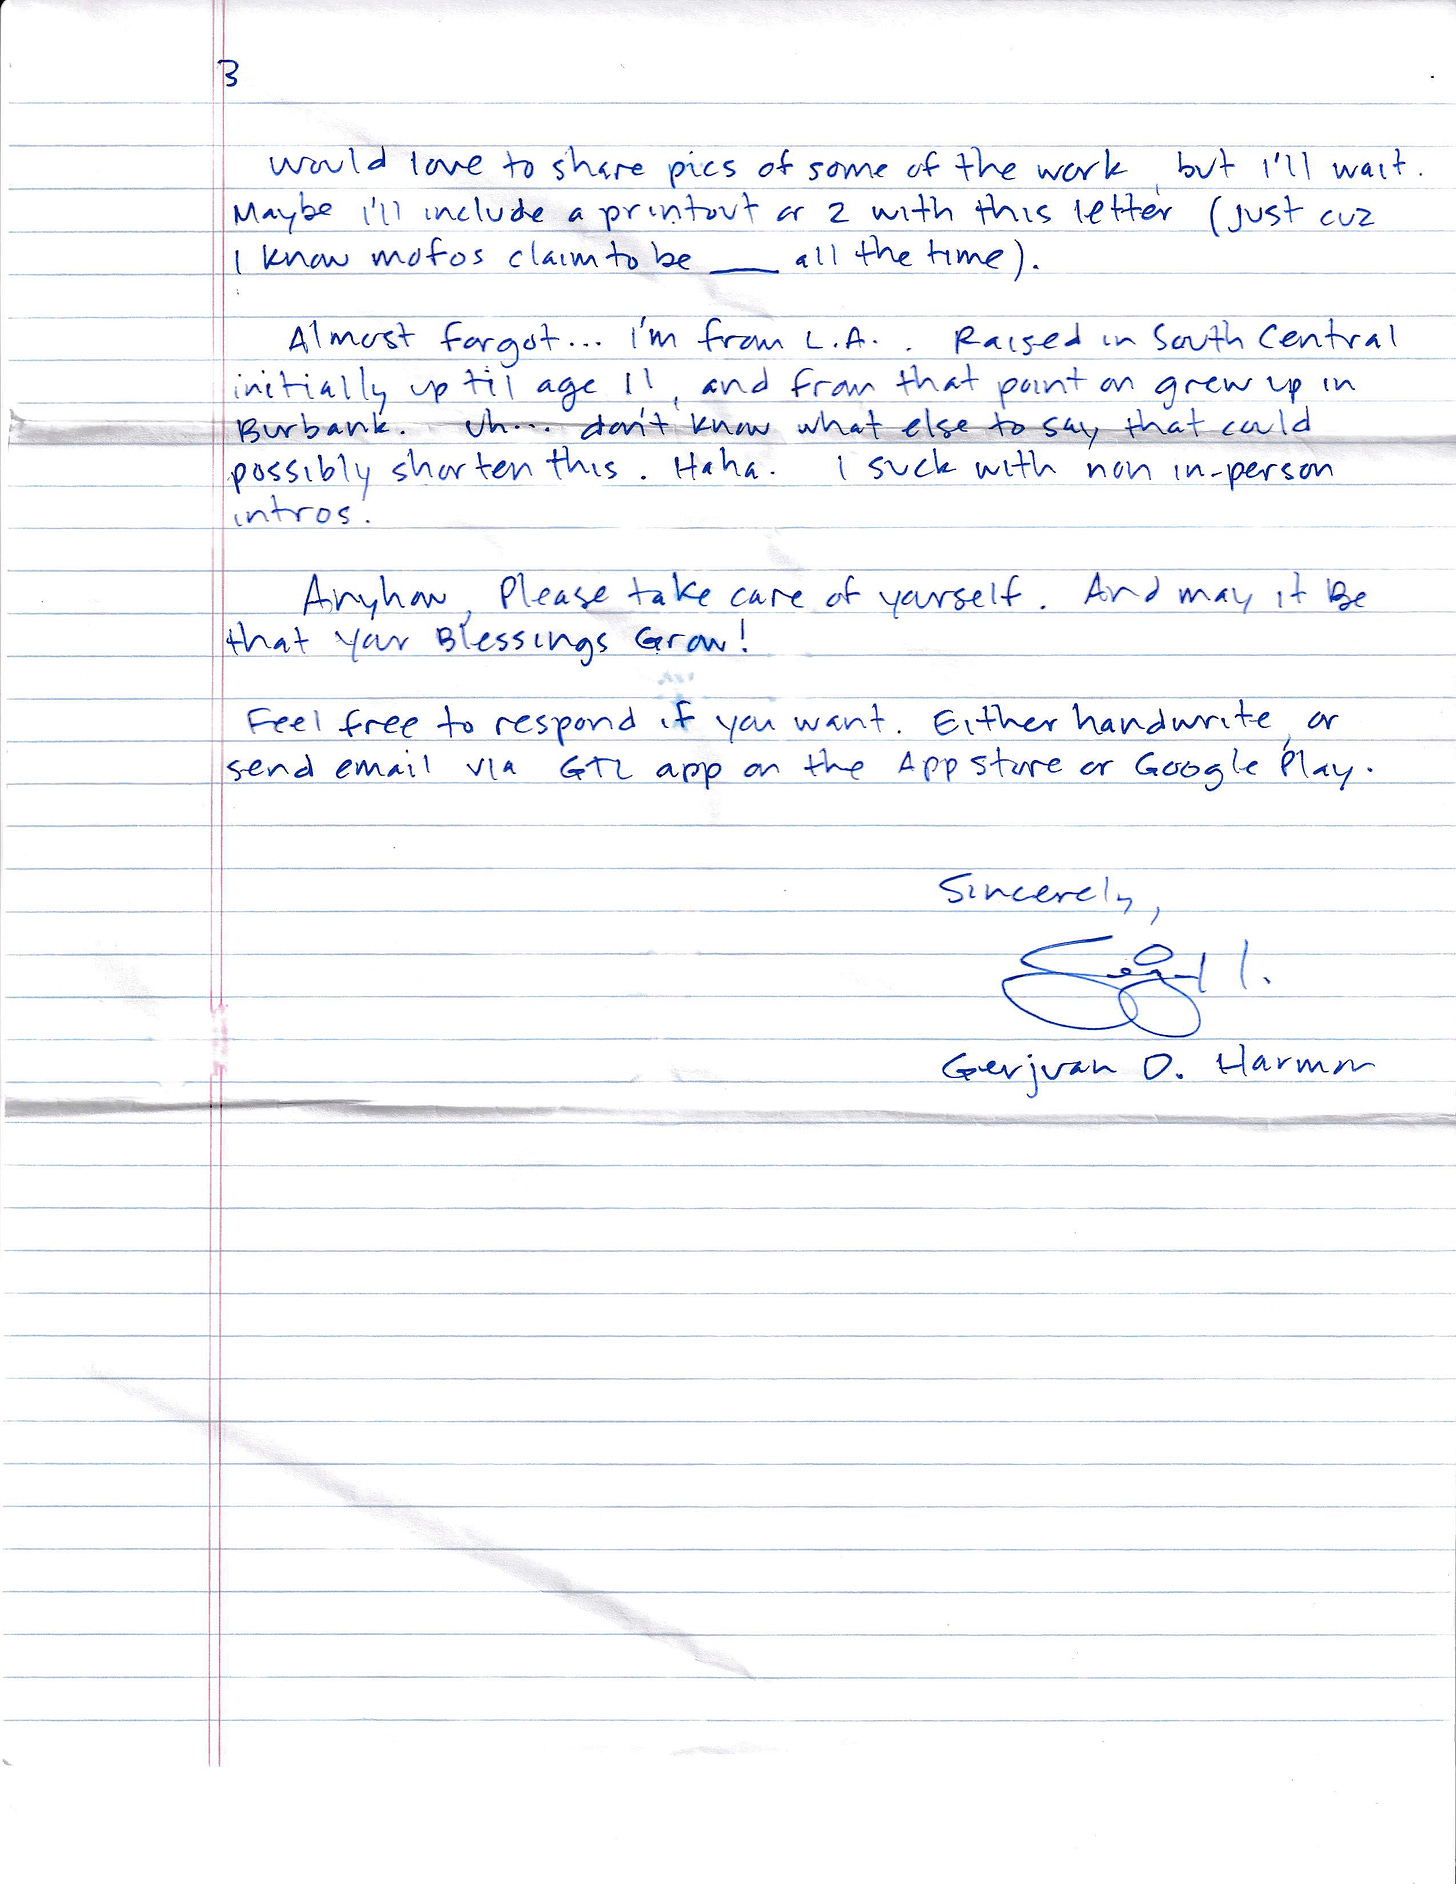 3
would love to share pics of some of the work, but I'll wait.
Maybe I'll include a printout or 2 with this letter (just cuz
I know mofos claim to be ___ all the time).
Almost forgot... I'm from L.A. . Raised in South Central
initially up til age 11, and from that point on grew up in
Burbank. Uh... don't know what else to say that could
possibly shorten this. Haha. I suck with non in-person
intros.
Anyhow, Please take care of yourself. And may it Be
that your Blessings Grow!
Feel free to respond if you want. Either handwrite, or
send email via GTL app on the App Store or Google Play.
Sincerely,
Gerjuan D. Harmon